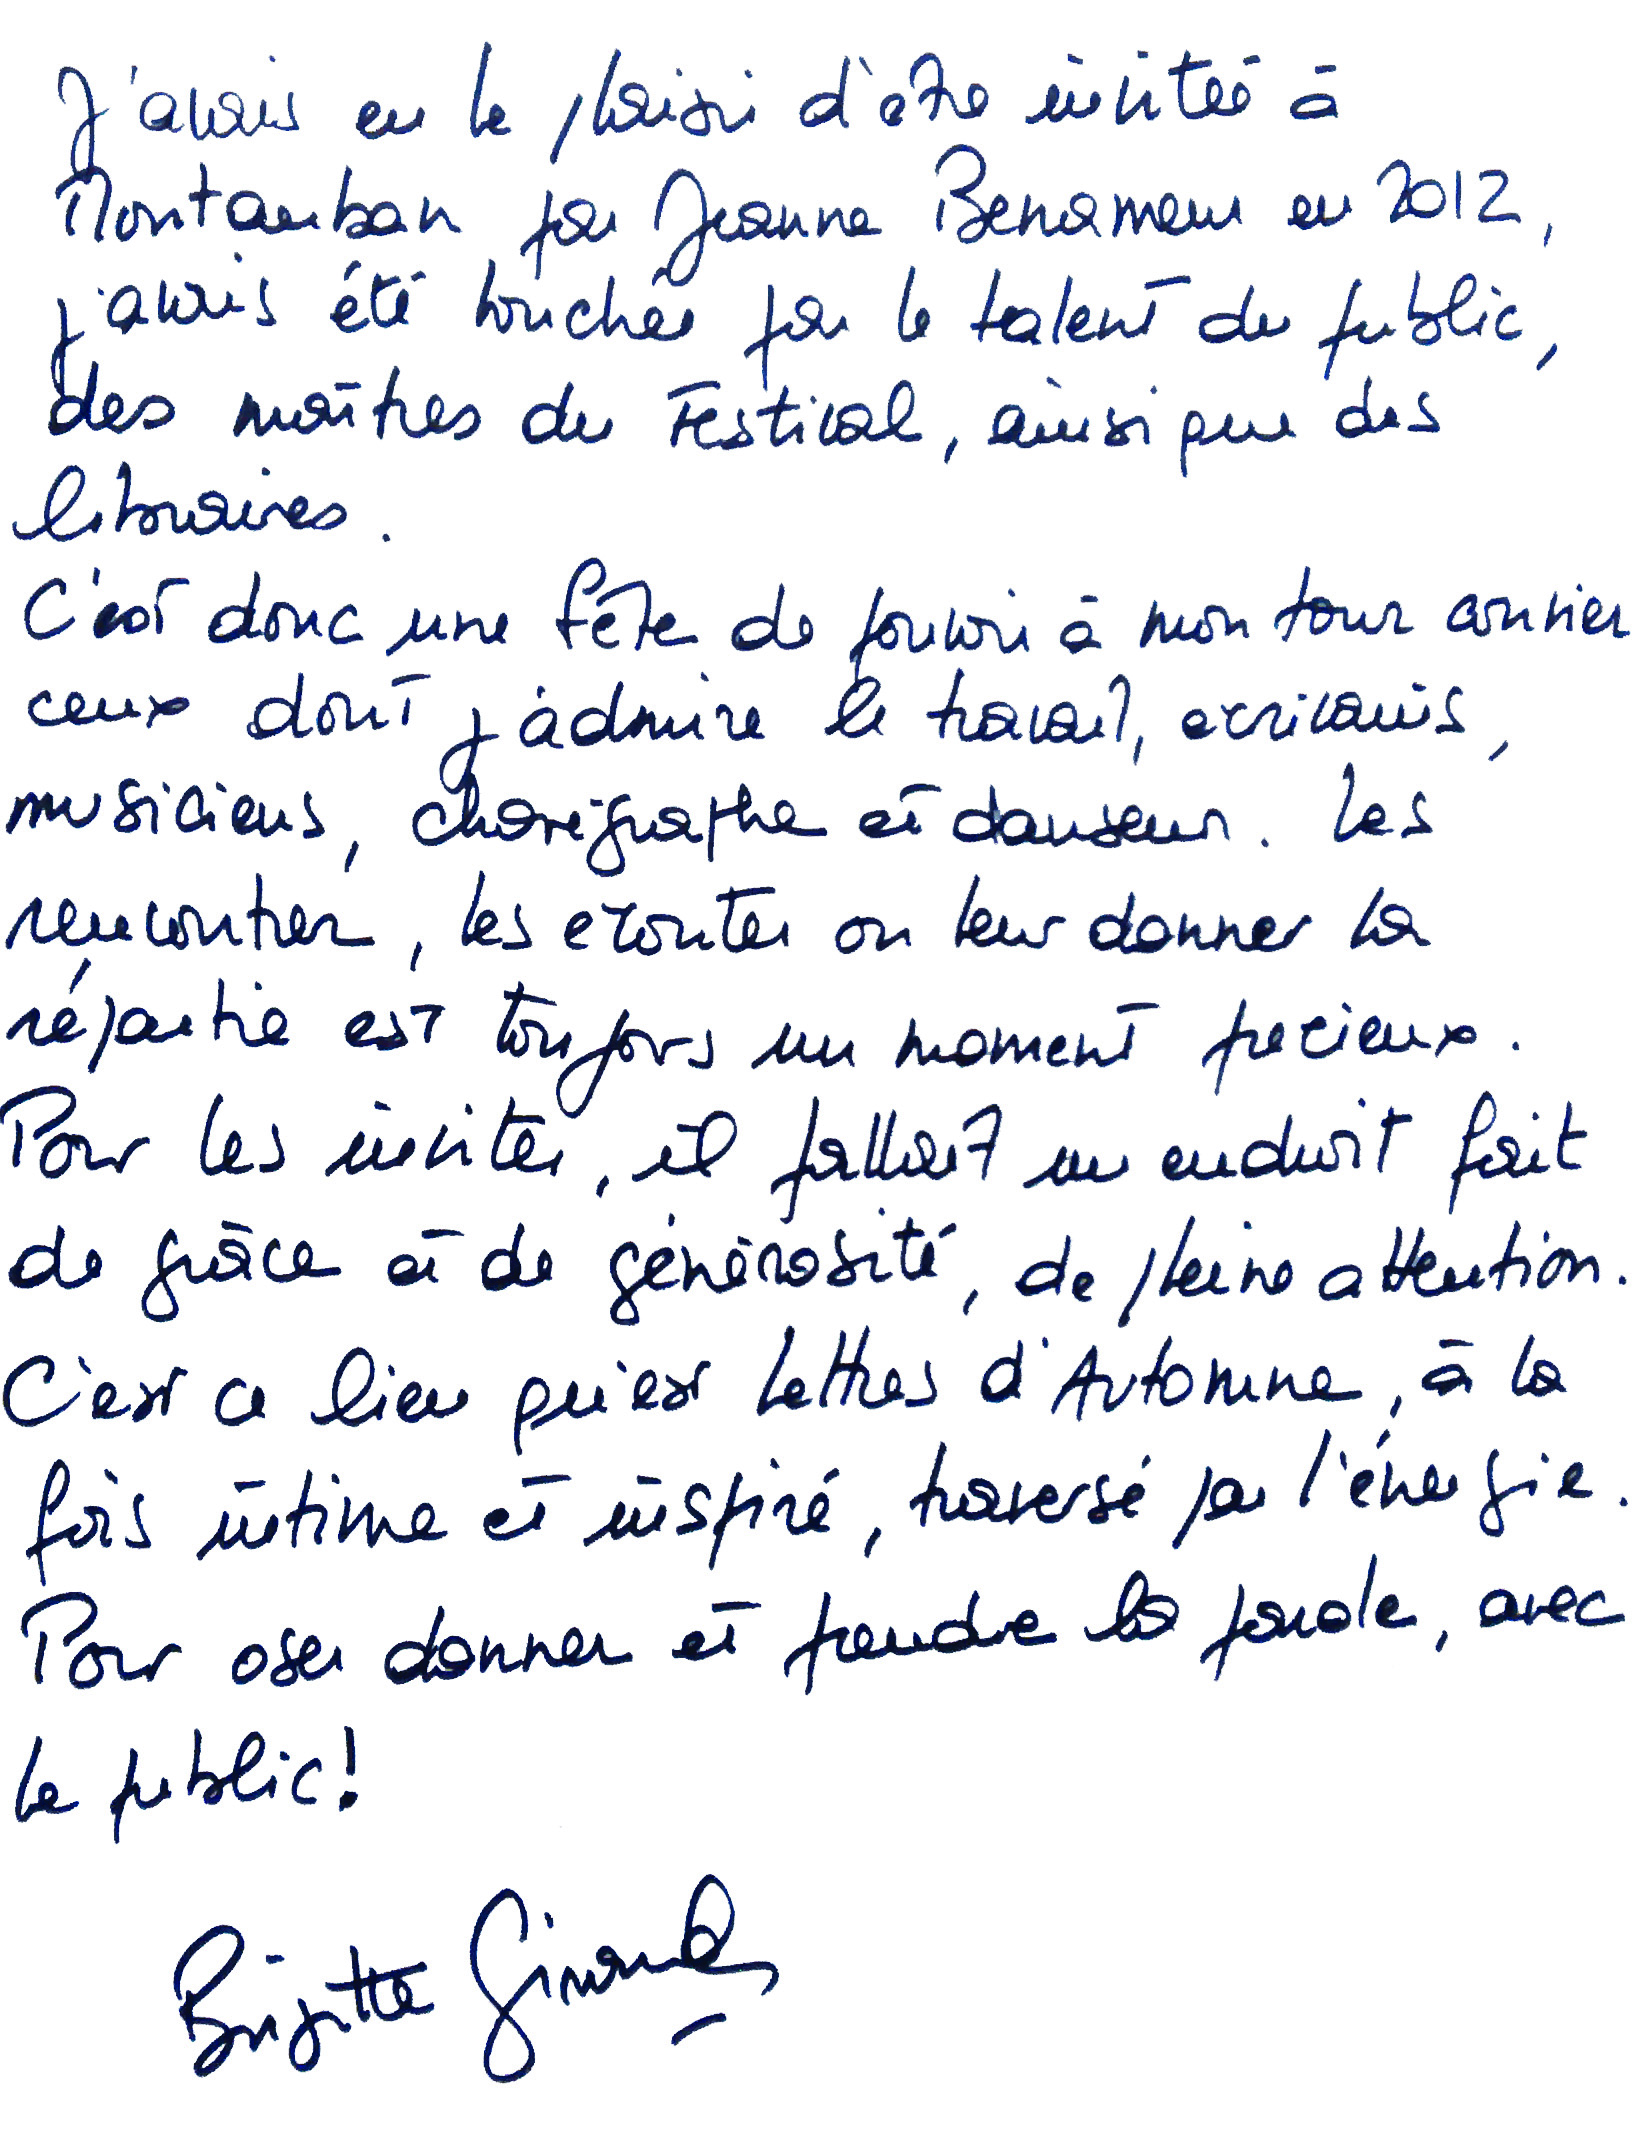 J'avais eu le plaisir d'être invitée à
Montauban par Jeanne Benameur en 2012,
j'avais été touchée par le talent du public,
des maîtres du Festival, ainsi que des
libraires.
C'est donc une fête de pouvoir à mon tour convier
ceux dont j'admire le travail, écrivains,
musiciens, chorégraphe et danseur. Les
rencontrer, les écouter ou leur donner la
répartie est toujours un moment précieux.
Pour les inviter, il fallait un endroit fait
de grâce et de générosité, de pleine attention.
C'est ce lieu qu'est Lettres d'Automne, à la
fois intime et inspiré, traversé par l'énergie.
Pour oser donner et prendre la parole, avec
le public!
Brigitte Giraud